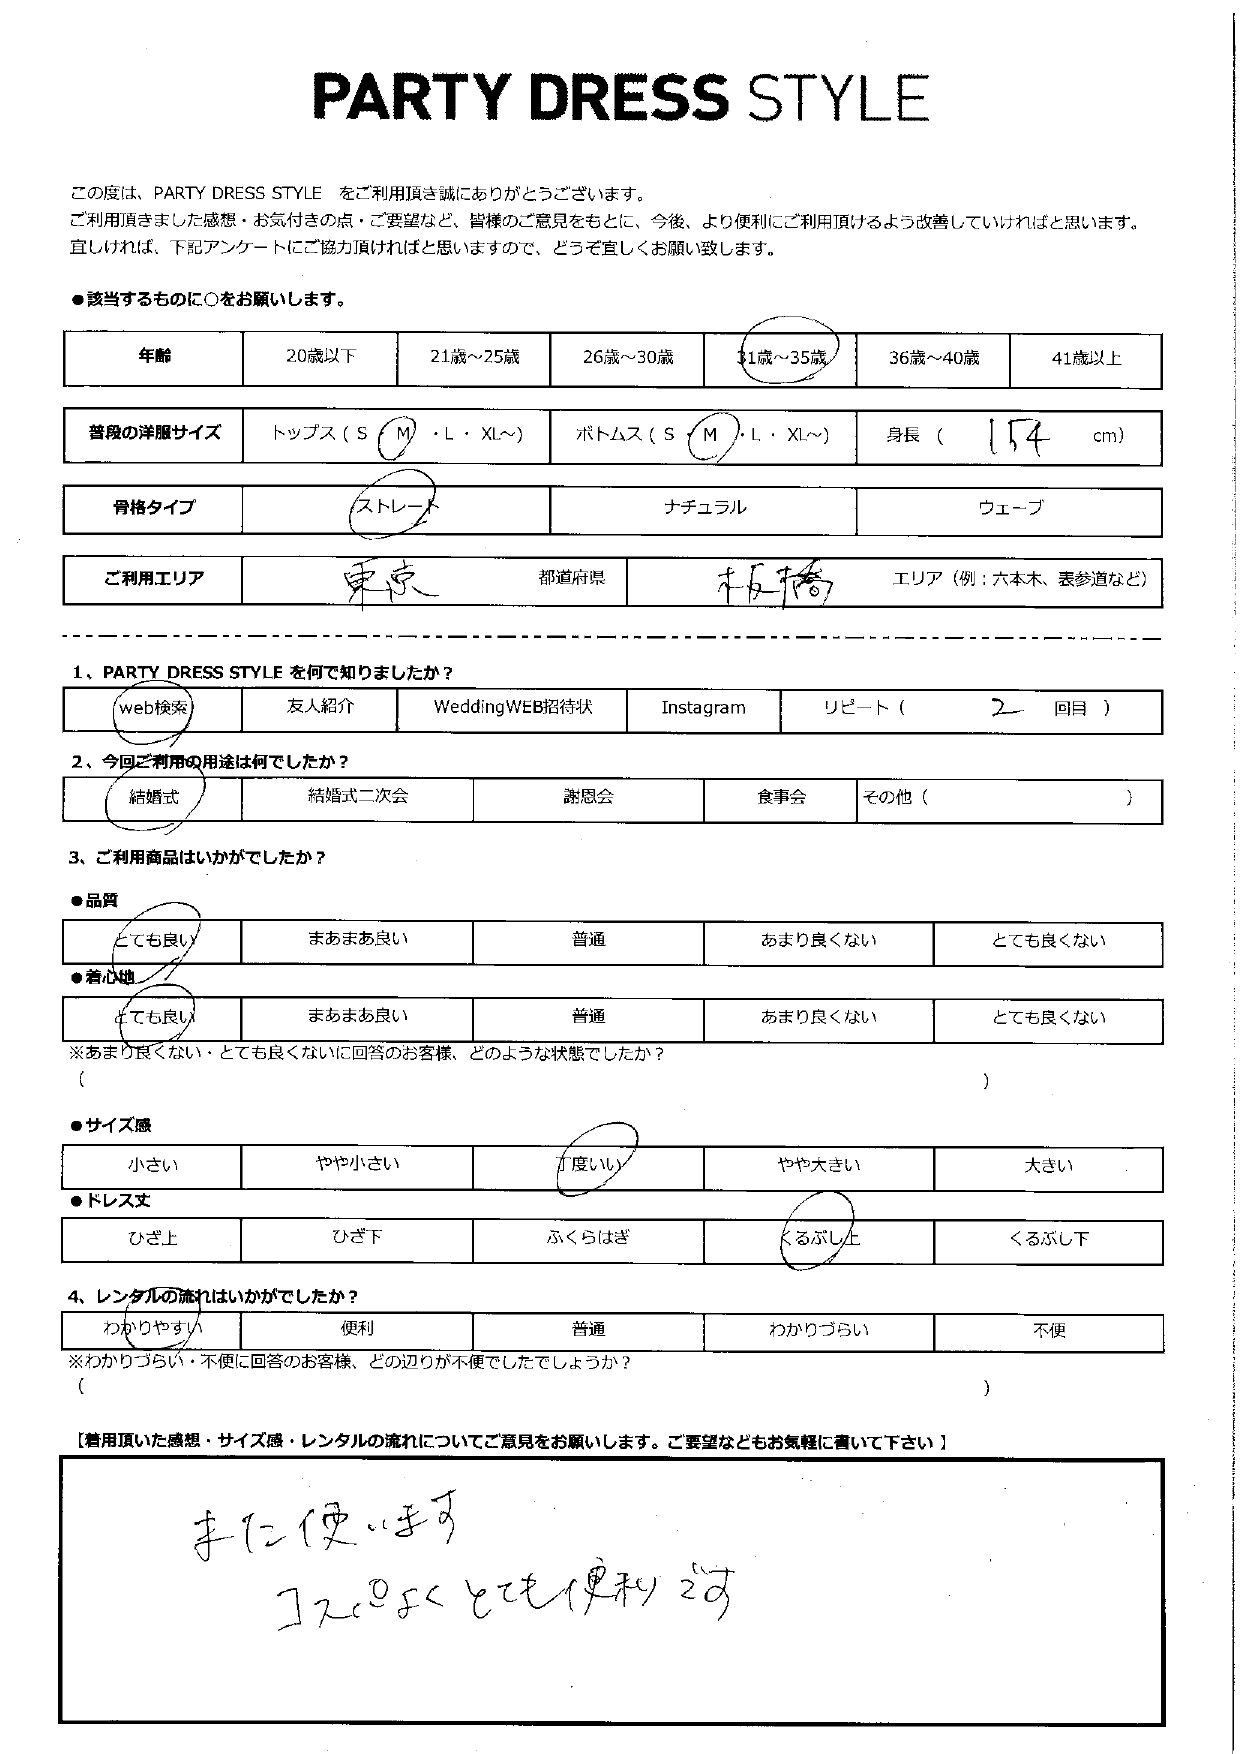 PARTY DRESS STYLE
この度は、PARTY DRESS STYLE をご利用頂き誠にありがとうございます。
ご利用頂きました感想・お気付きの点・ご要望など、皆様のご意見をもとに、今後、より便利にご利用頂けるよう改善していければと思います。
宜しければ、下記アンケートにご協力頂ければと思いますので、どうぞ宜しくお願い致します。
●該当するものに○をお願いします。
年齢 20歳以下 21歳～25歳 26歳～30歳 31歳～35歳 36歳～40歳 41歳以上
普段の洋服サイズ トップス ( S ・ M ・ L ・ XL～) ボトムス ( S ・ M ・ L ・ XL～) 身長 ( 154 cm)
骨格タイプ ストレート ナチュラル ウェーブ
ご利用エリア 東京 都道府県 板橋 エリア（例：六本木、表参道など）
1、PARTY DRESS STYLE を何で知りましたか？
web検索 友人紹介 WeddingWEB招待状 Instagram リピート ( 2 回目 )
2、今回ご利用の用途は何でしたか？
結婚式 結婚式二次会 謝恩会 食事会 その他 ( )
3、ご利用商品はいかがでしたか？
●品質
とても良い まあまあ良い 普通 あまり良くない とても良くない
●着心地
とても良い まあまあ良い 普通 あまり良くない とても良くない
※あまり良くない・とても良くないに回答のお客様、どのような状態でしたか？
( )
●サイズ感
小さい やや小さい 丁度いい やや大きい 大きい
●ドレス丈
ひざ上 ひざ下 ふくらはぎ くるぶし上 くるぶし下
4、レンタルの流れはいかがでしたか？
わかりやすい 便利 普通 わかりづらい 不便
※わかりづらい・不便に回答のお客様、どの辺りが不便でしたでしょうか？
( )
【着用頂いた感想・サイズ感・レンタルの流れについてご意見をお願いします。ご要望などもお気軽に書いて下さい 】
また使います
コスパよくとても便利です